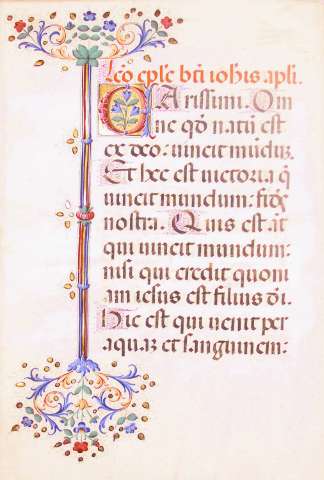 Lco eples bti iohis apli.
Carissimi. Om
ne qd natu est
ex deo: uincit mudus.
Et hec est uictoria q
uincit mundum: fides
nostra. Quis est at
qui uincit mundum:
nisi qui credit quoni
am iesus est filius di.
Hic est qui uenit per
aquaz et sanguinem: